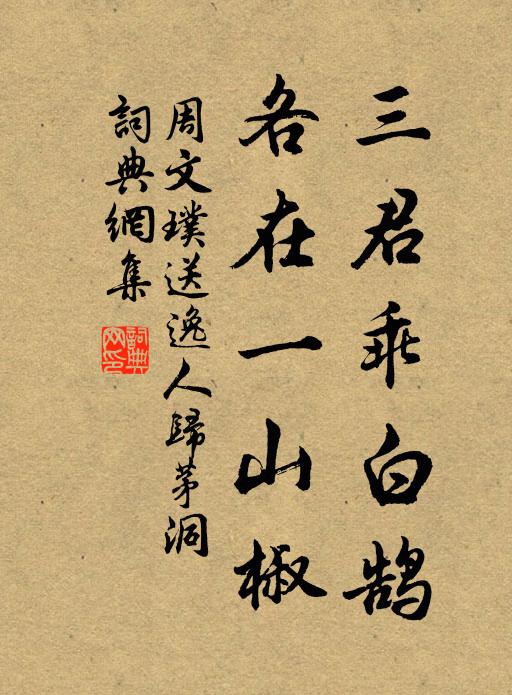 三君乘白鹄
各在一山椒
周文璞送逸人歸茅洞
詞典網集
詞典网印